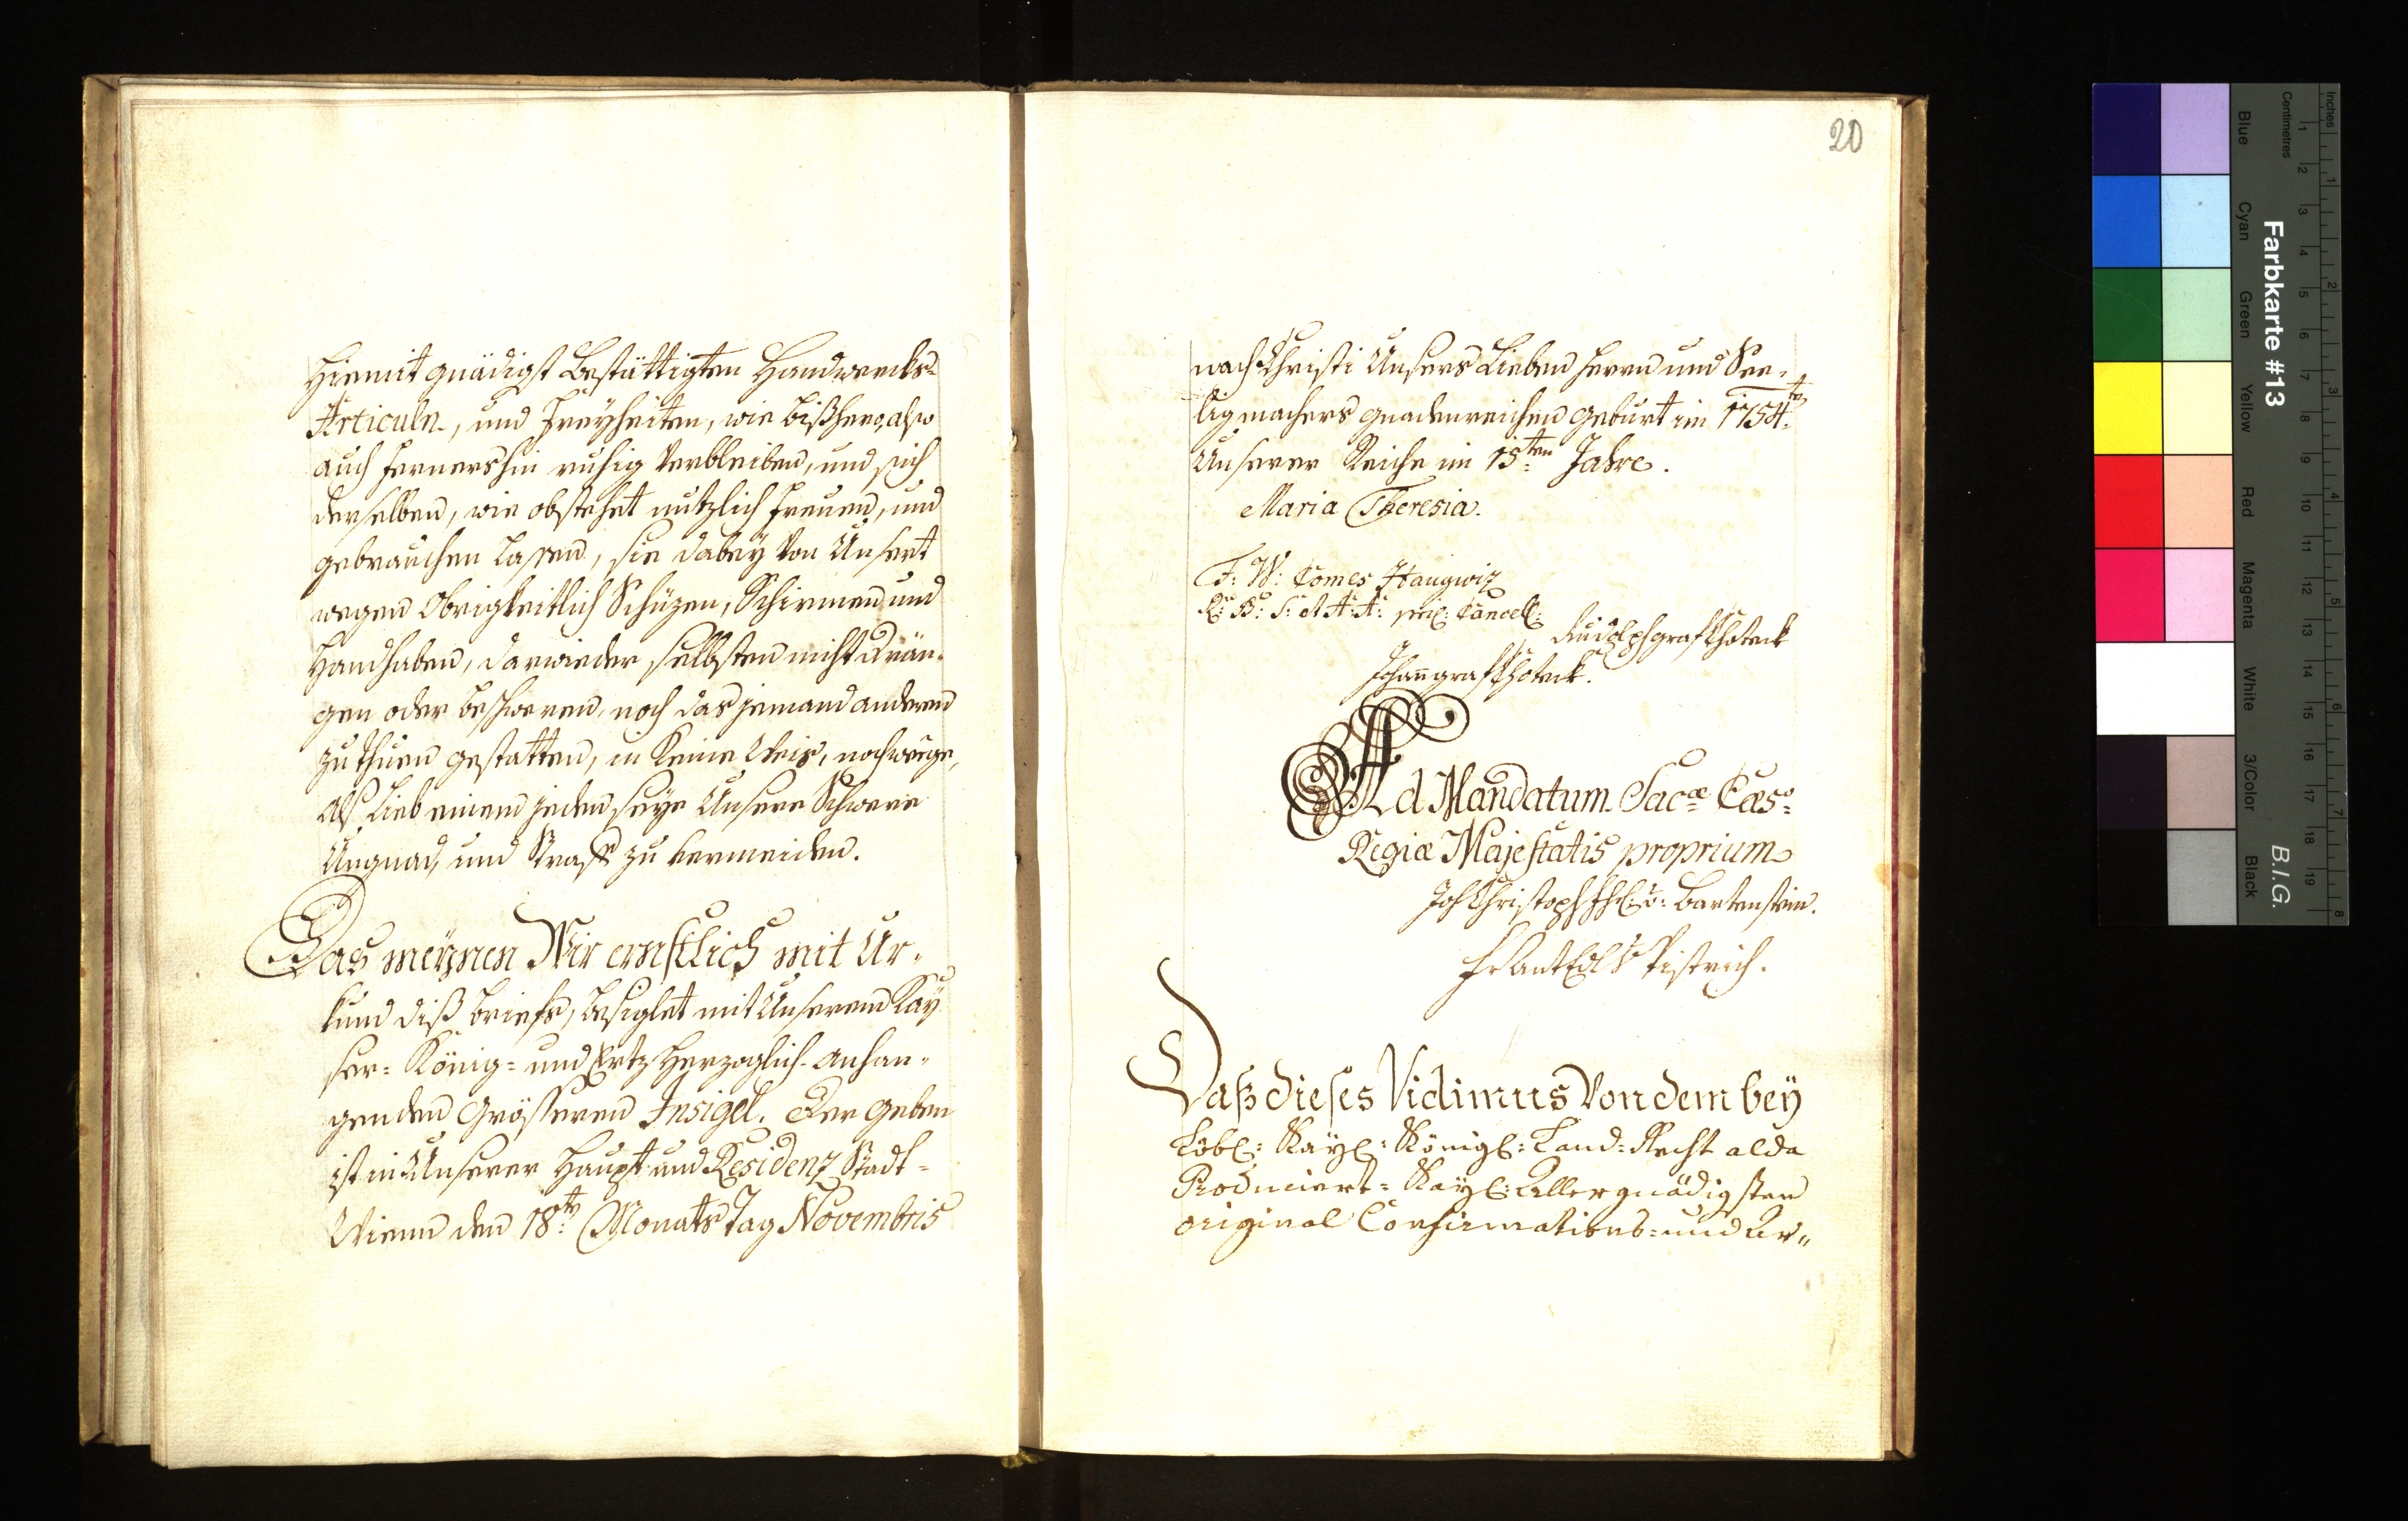 Hiemit gnädigst Bestättigten Handwercks-
Articuln, und Freyheiten, wie bißhero, also
auch fernershin ruhig Verbleiben, und sich
derselben, wie obstehet nutzlich freuen, und
gebrauchen laßen, sie dabey Von Unsert
wegen Obrigkeitlich Schüzen, Schirmen und
Handhaben, darwieder selbsten nicht drän-
gen oder beschweren, noch das jemand anderen
zu thuen gestatten, in keine Weis, noch weege,
als Lieb einem jeden seye Unsere Schwere
Ungnad, und Straff zu vermeiden.
Das meÿnen Wir ernstlich mit Ur-
kund diß briefs, besiglet mit Unserem Kaÿ
ser= König= und Ertz Herzoglich-anhan-
genden Grösseren Insigel. Der geben
ist in Unserer Haupt und Residenz Stadt=
Wienn den 18.ten Monats Tag Novembris
20
nach Christi Unsers Lieben Herrn und See-
ligmachers gnadenreichen Geburt im 1754.ten
Unserer Reiche im 15.ten Jahre.
Maria Theresia.
F: W: Comes Haugwiz
R: B: S: A A: A: pri: Cancell:
Rudolph graf Choteck
Johan graf Choteck.
Ad Mandatum Sac:æ Cæs:
Regiæ Majestatis proprium
Joh Christoph fh: v: Bartenstein.
Fr Ant Edl v Pistrich.
Daß dieses Vidimus Von dem beÿ
Löbl: Kaÿl: Königl: Land-Recht alda
Produciert= Kaÿl: Allergnädigsten
original Confirmations= und Ar=